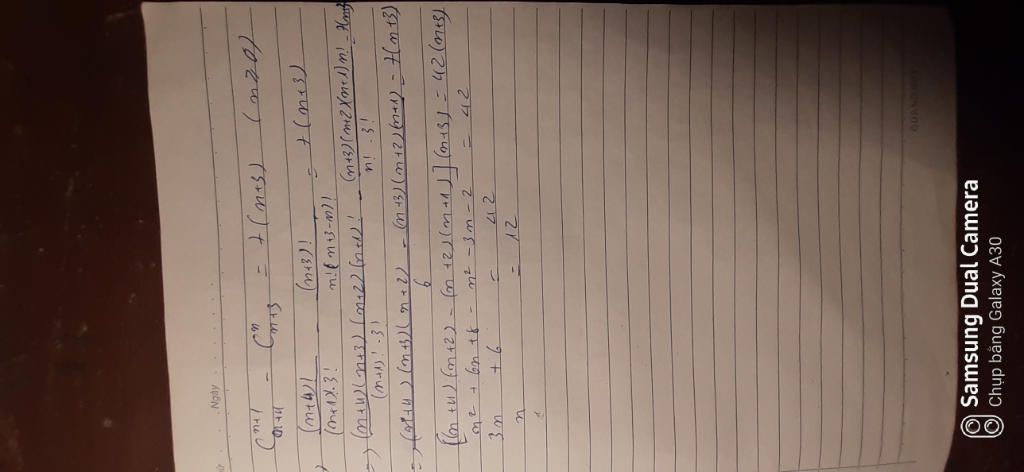 Ngày
C^{n+1}_{n+4} - C^{n}_{n+3} = 7(n+3) (n≥0)
(n+4)!/((n+1)!.3!) - (n+3)!/(n!(n+3-n)!) = 7(n+3)
=) (n+4)(n+3)(n+2)(n+1)!/((n+1)!.3!) - (n+3)(n+2)(n+1)n!/(n!.3!) = 7(n+3)
=) ((n+4)(n+3)(n+2) - (n+3)(n+2)(n+1))/6 = 7(n+3)
[(n+4)(n+2) - (n+2)(n+1)](n+3) = 42(n+3)
n² + 6n + 8 - n² - 3n - 2 = 42
3n + 6 = 42
n = 12
Samsung Dual Camera
Chụp bằng Galaxy A30